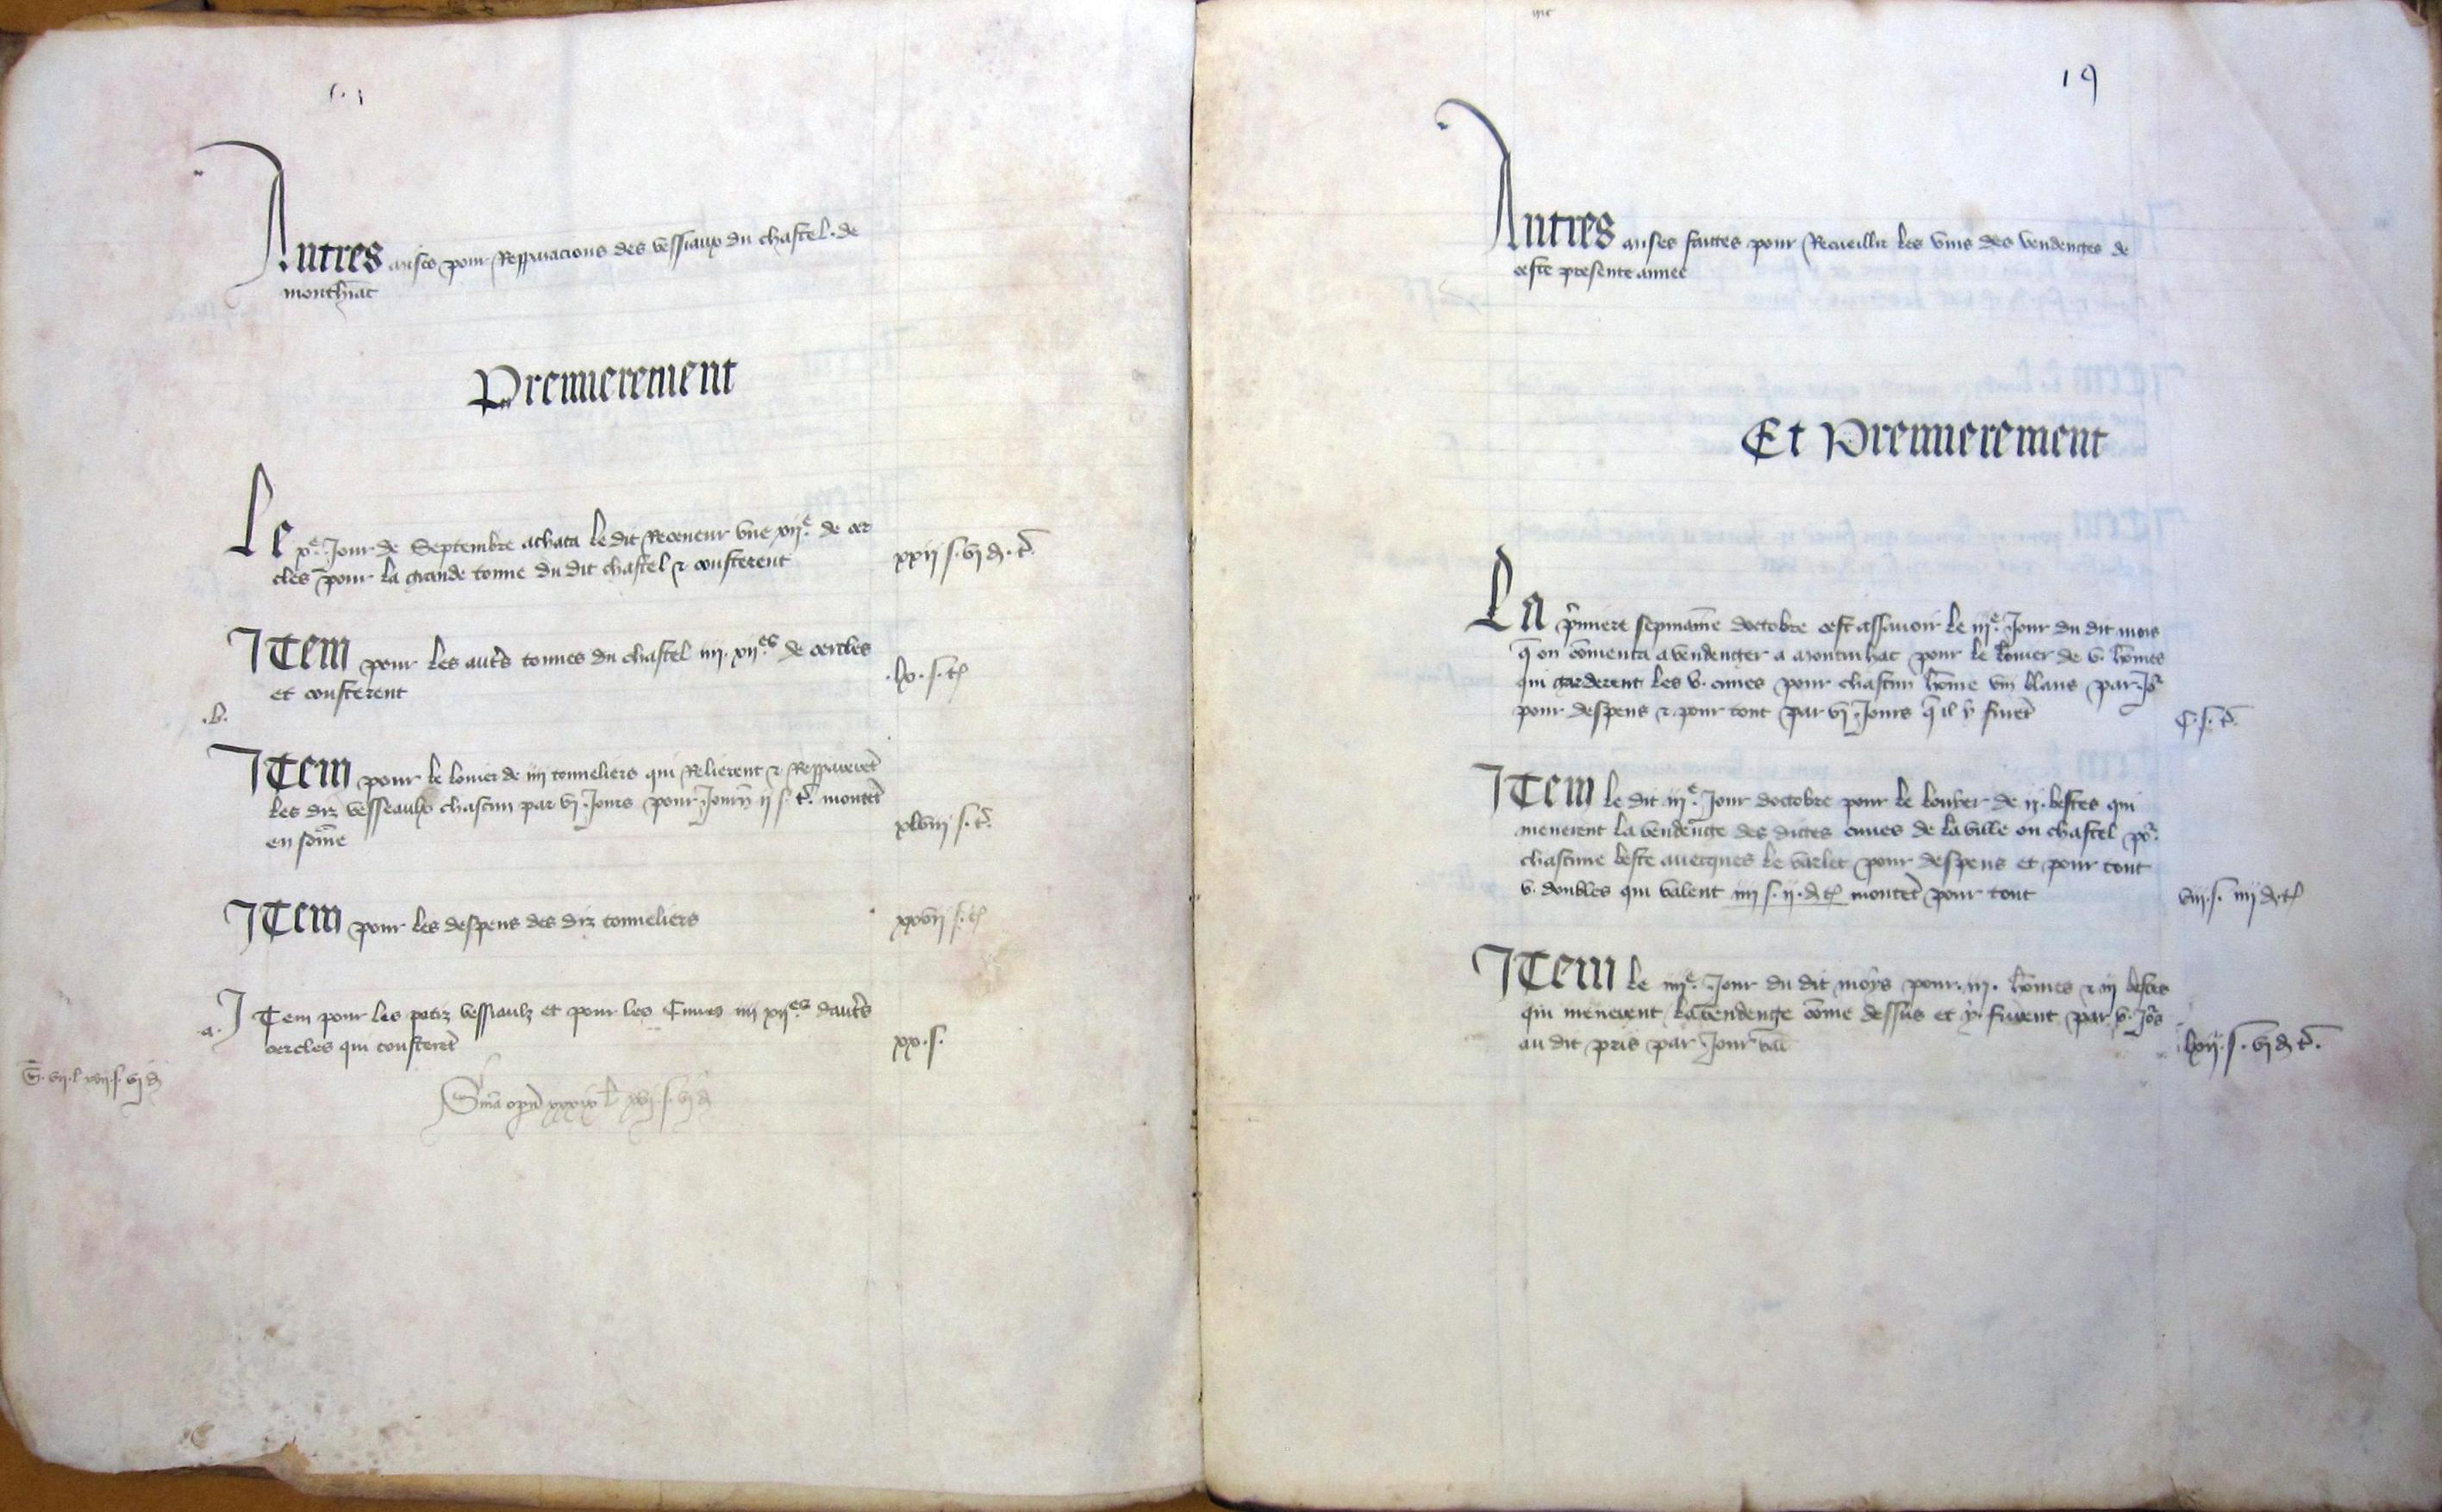 Autres mises pour Repparacions des vessiaux du chastel. de
monthnac
Premierement
Le xe. Jour de Septembre achata le dit Receveur une xije. de cer
cles pour la grande tonne du dit chastel & cousterent
xxij s. vj d. t.
Item pour les autrs tonnes du chastel iiij. xijes. de cercles
et cousterent
.lx. s. t.
.b.
Item pour le louier de iiij tonneliers qui Relierent & Reppareret
les diz vesseaulx chascun par vj. Jours pour Journ ij s. t. montet
en some
xlviij s. t.
Item pour les despens des diz tonneliers
xxvij s. t.
.a. Item pour les petiz vessiaulx et pour les Cuves iiij xijes. dautrs
cercles qui cousteret
xx. s.
S. vij. l xvij. s. vj d
19
Autres mises faittes pour Recueillir les vins des vendenges de
ceste presente annee
Et Premierement
La prmiere sepmaine doctobre cest assavoir le iije. Jour du dit mois
q on comenca a vendenger a montinhac pour le louier de v. homes
qui garderent les v. cuves pour chascun home viij blans par Jor
pour despens & pour tout par vj. Jours q il y furet
C. s. t.
Item le dit iije. Jour doctobre pour le louier de ij. bestes qui
menerent la vendenge des dittes cuves de la ville ou chastel por.
chascune beste avecques le varlet pour despens et pour tout
v. doubles qui valent iiij s. ij. d. t. montet pour tout
viij. s. iiij d. t.
Item le iiije. Jour du dit moys pour. iij. homes & iij bestes
qui menerent la vendenge come dessus et y furent par v. Jors
au dit pris par Jour val
lxij. s. vj d t.